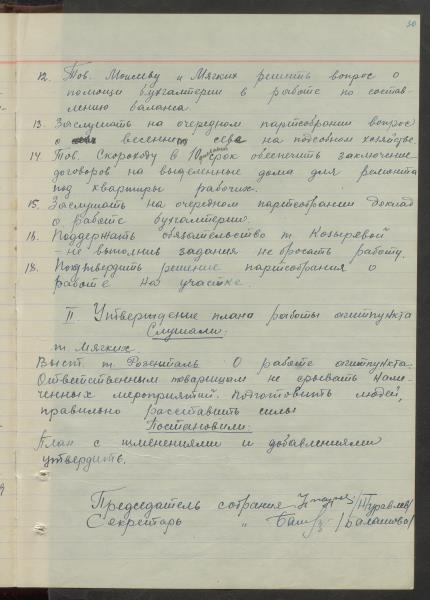 30
12. Тов. Моисеву и Мягких решить вопрос о
помощи бухгалтерии в работе по состав-
лению баланса.
13. Заслушать на очередном партсобрании вопрос
о весеннем севе на подсобном хозяйстве.
14. Тов. Скороходу в 10 дневный срок обеспечить заключение
договоров на выделенные дома для ремонта
под квартиры рабочих.
15. Заслушать на очередном партсобрании доклад
о работе бухгалтерии.
16. Поддержать обязательство т. Козыревой
- не выполнив задания не бросать работу.
18. Подтвердить решение партсобрания о
работе на участке.
II. Утверждение плана работы агитпункта
Слушали:
т. Мягких.
Выст. т. Розенталь О работе агитпункта.
Ответственным товарищам не срывать наме-
ченных мероприятий. Подготовить людей,
правильно расставить силы
Постановили:
План с изменениями и добавлениями
утвердить.
Председатель собрания /Журавлев/
Секретарь " /Балашова/